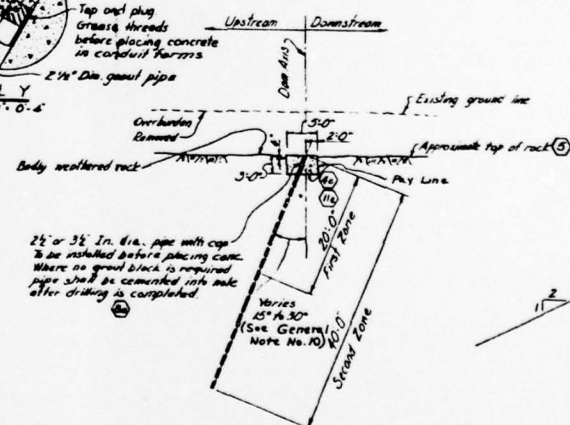 Tap and plug
Grease threads
before placing concrete
in conduit forms
2½" Dia. grout pipe
L Y
Upstream
Downstream
Dam Axis
Existing ground line
Overburden
Removed
5'-0"
2'-0"
Approximate top of rock 5
Badly weathered rock
3'-0"
Pay Line
4c
11c
2½ or 3½ In. dia. pipe with cap
To be installed before placing conc.
Where no grout block is required
pipe shall be cemented into hole
after drilling is completed.
20'-0"
First Zone
Varies
15° to 30°
(See General
Note No. 10)
40'-0"
Second Zone
1
2